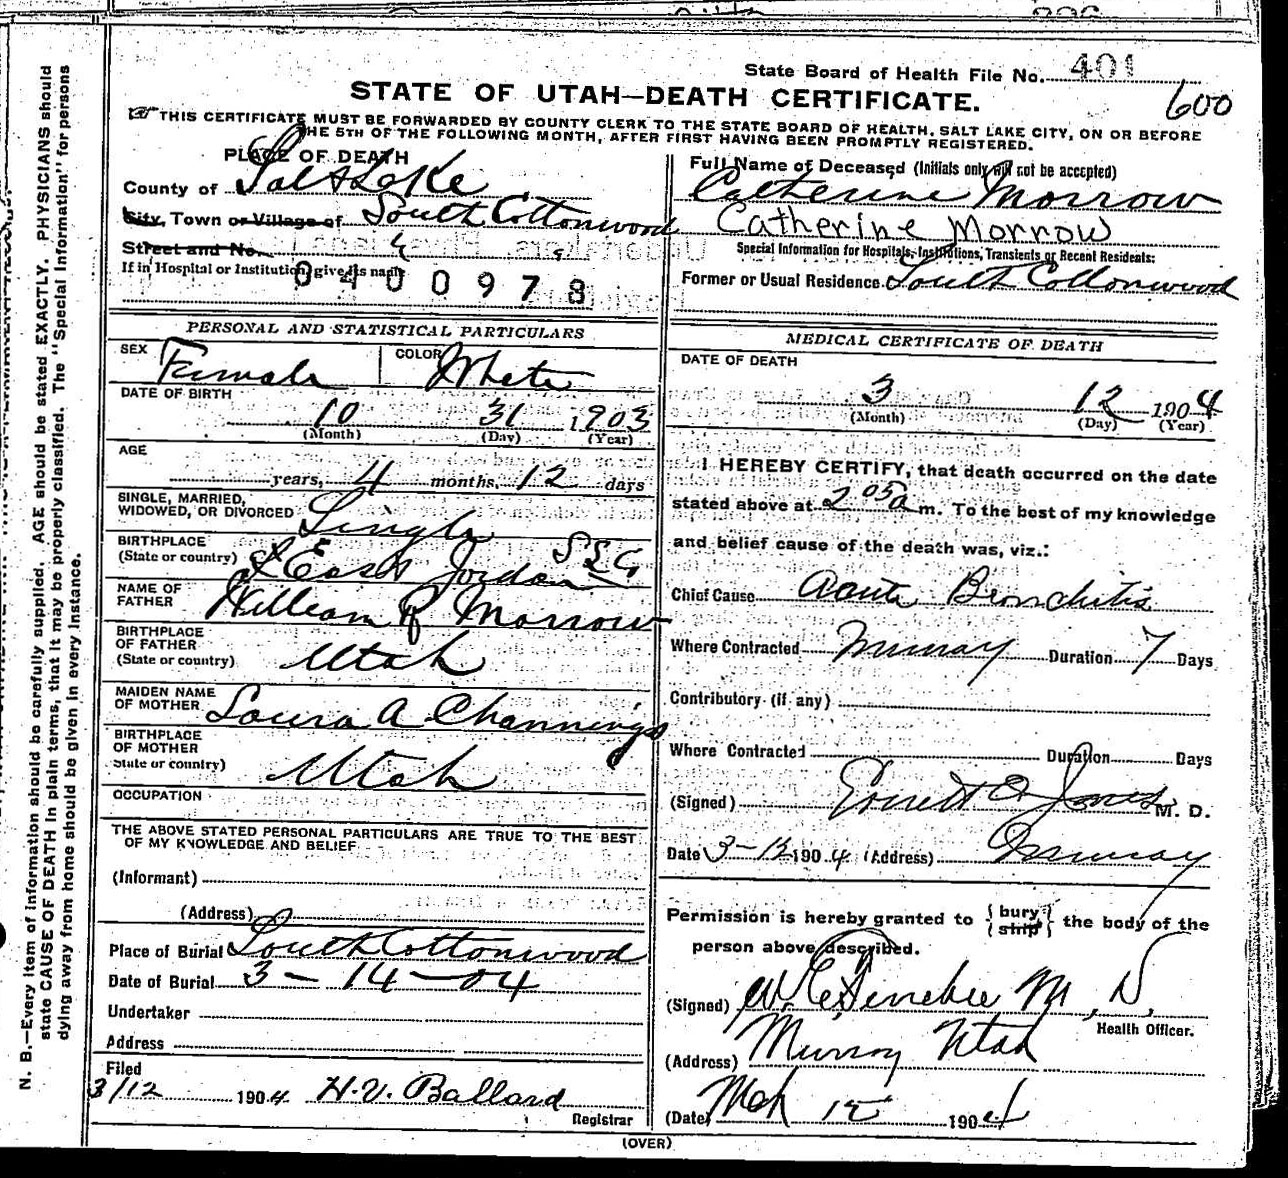 State Board of Health File No. 401
600
STATE OF UTAH—DEATH CERTIFICATE.
THIS CERTIFICATE MUST BE FORWARDED BY COUNTY CLERK TO THE STATE BOARD OF HEALTH, SALT LAKE CITY, ON OR BEFORE
THE 5TH OF THE FOLLOWING MONTH, AFTER FIRST HAVING BEEN PROMPTLY REGISTERED.
PLACE OF DEATH
County of Salt Lake
City, Town or Village of South Cottonwood
Street and No.
If in Hospital or Institution, give its name
0400978
Full Name of Deceased (Initials only will not be accepted)
Catherine Morrow
Catherine Morrow
Special Information for Hospitals, Institutions, Transients or Recent Residents:
Former or Usual Residence South Cottonwood
PERSONAL AND STATISTICAL PARTICULARS
SEX Female COLOR White
DATE OF BIRTH
10 31 1903
(Month) (Day) (Year)
AGE
years, 4 months, 12 days
SINGLE, MARRIED,
WIDOWED, OR DIVORCED Single
BIRTHPLACE
(State or country) East Jordan
NAME OF
FATHER William R Morrow
BIRTHPLACE
OF FATHER
(State or country) Utah
MAIDEN NAME
OF MOTHER Laura A. Channings
BIRTHPLACE
OF MOTHER
State or country) Utah
OCCUPATION
THE ABOVE STATED PERSONAL PARTICULARS ARE TRUE TO THE BEST
OF MY KNOWLEDGE AND BELIEF
(Informant)
(Address)
Place of Burial South Cottonwood
Date of Burial 3-14-04
Undertaker
Address
Filed
3/12 1904 H.V. Ballard
Registrar
MEDICAL CERTIFICATE OF DEATH
DATE OF DEATH
3 12 1904
(Month) (Day) (Year)
I HEREBY CERTIFY, that death occurred on the date
stated above at 2 05 a m. To the best of my knowledge
and belief cause of the death was, viz.:
Chief Cause Acute Bronchitis
Where Contracted Murray Duration 7 Days
Contributory (if any)
Where Contracted Duration Days
(Signed) Jones M. D.
Date 3-12 1904 (Address) Murray
Permission is hereby granted to {bury} {ship} the body of the
person above described.
(Signed) M. D.
Health Officer.
(Address) Murray Utah
(Date) Mch 12 1904
(OVER)
N. B.—Every item of information should be carefully supplied. AGE should be stated EXACTLY. PHYSICIANS should
state CAUSE OF DEATH in plain terms, that it may be properly classified. The "Special Information" for persons
dying away from home should be given in every instance.